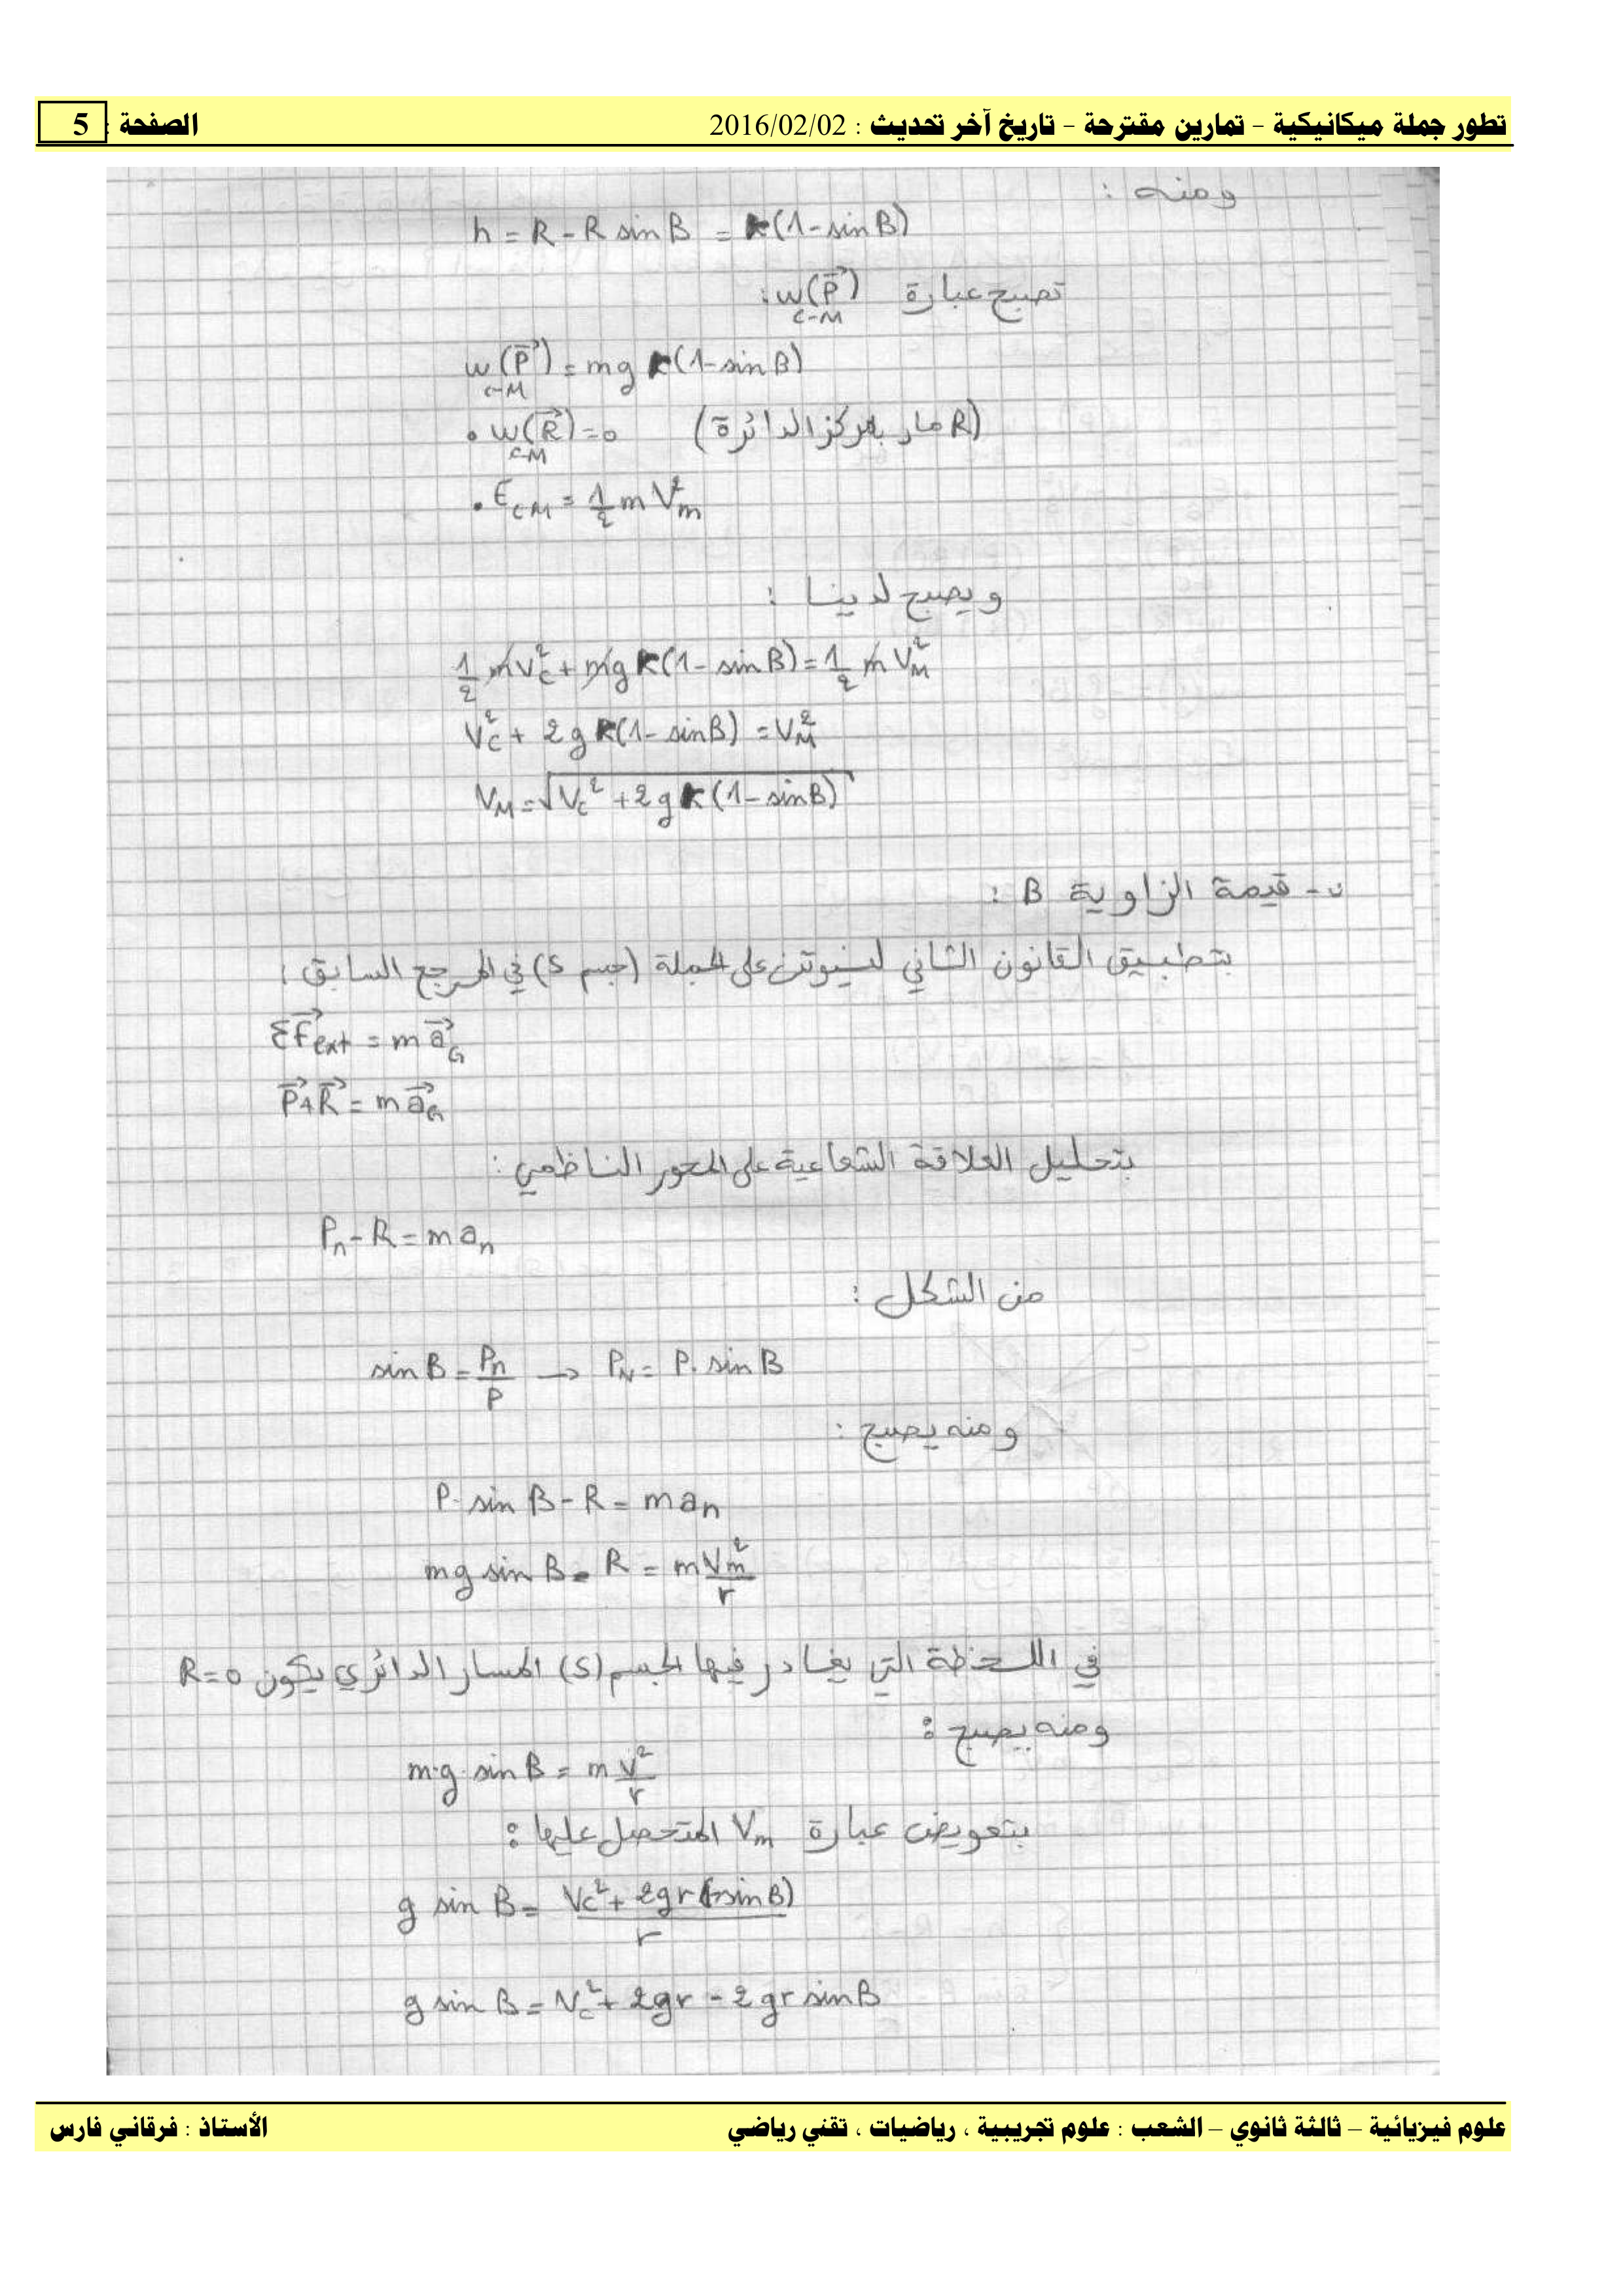 تطور جملة ميكانيكية - تمارين مقترحة - تاريخ آخر تحديث : 2016/02/02 الصفحة : 5
ومنه :
h = R - R sin B = r(1 - sin B)
تصبح عبارة w(P⃗) C-M :
w(P⃗) C-M = mg r(1 - sin B)
• w(R⃗) C-M = 0 (R مار بمركز الدائرة)
• E_CM = 1/2 m V_m²
ويصبح لدينا :
1/2 m V_C² + mg r(1 - sin B) = 1/2 m V_M²
V_C² + 2g r(1 - sin B) = V_M²
V_M = √(V_C² + 2g r(1 - sin B))
ب - قيمة الزاوية B :
بتطبيق القانون الثاني لنيوتن على الجملة (جسم S) في المرجع السابق :
ΣF⃗ext = m a⃗_G
P⃗ + R⃗ = m a⃗_G
بتحليل العلاقة الشعاعية على المحور الناظمي :
P_n - R = m a_n
من الشكل :
sin B = P_n/P → P_N = P. sin B
ومنه يصبح :
P. sin B - R = m a_n
mg sin B - R = m V_m²/r
في اللحظة التي يغادر فيها الجسم (S) المسار الدائري يكون R = 0
ومنه يصبح :
m.g. sin B = m V²/r
بتعويض عبارة V_m المتحصل عليها :
g sin B = (V_C² + 2gr(1 - sin B))/r
g sin B = V_C² + 2gr - 2gr sin B
علوم فيزيائية – ثالثة ثانوي – الشعب : علوم تجريبية ، رياضيات ، تقني رياضي الأستاذ : فرقاني فارس